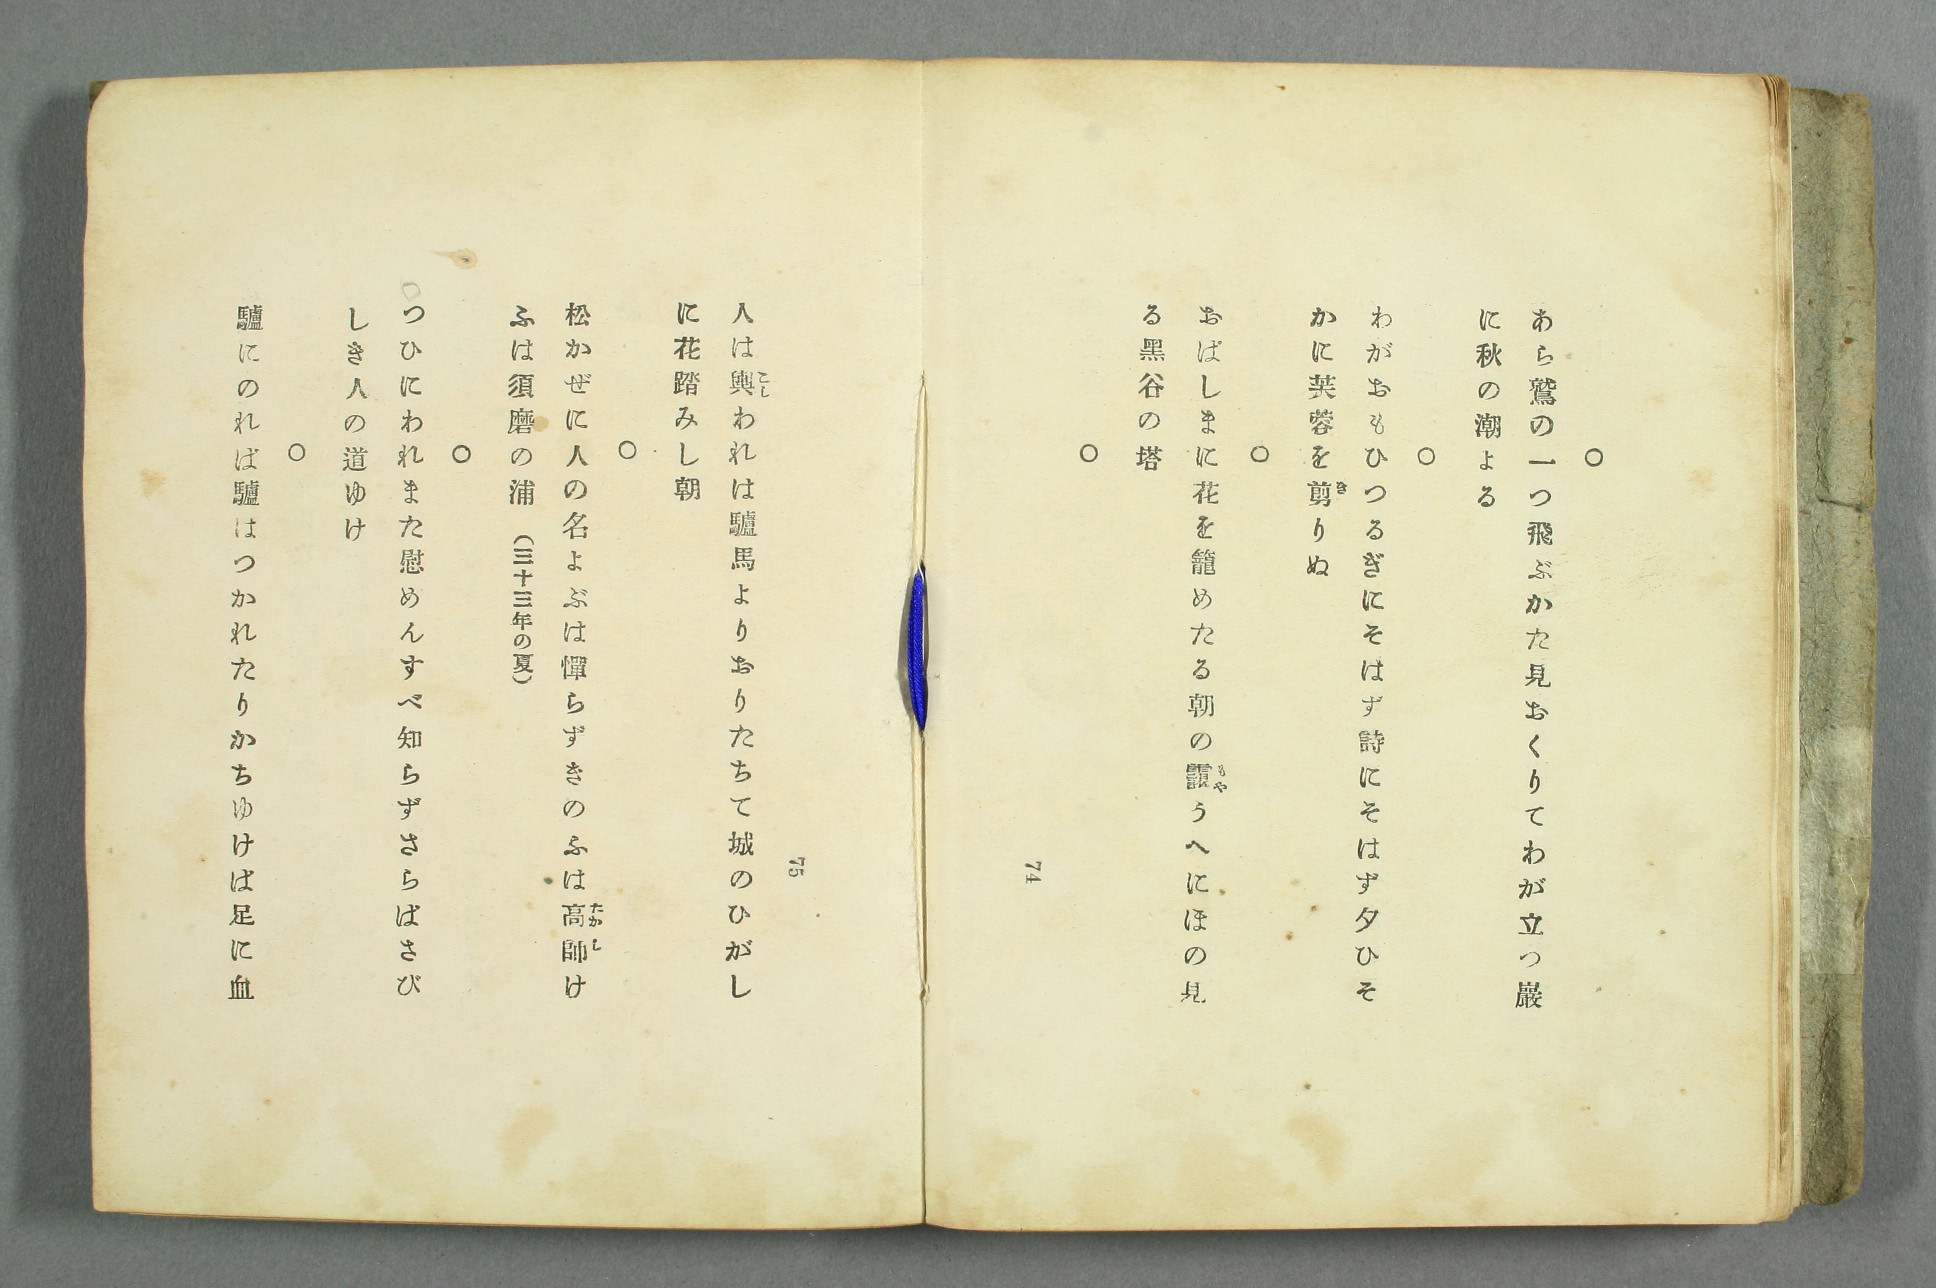 ○
あら鷲の一つ飛ぶかた見おくりてわが立つ巖
に秋の潮よる
○
わがおもひつるぎにそはず詩にそはず夕ひそ
かに芙蓉を剪りぬ
き
○
おばしまに花を籠めたる朝の靄うへにほの見
もや
る黑谷の塔
○
74
75
人は輿われは驢馬よりおりたちて城のひがし
こし
に花踏みし朝
○
松かぜに人の名よぶは憚らずきのふは高師け
たかし
ふは須磨の浦 (三十三年の夏)
○
つひにわれまた慰めんすべ知らずさらばさび
しき人の道ゆけ
○
驢にのれば驢はつかれたりかちゆけば足に血